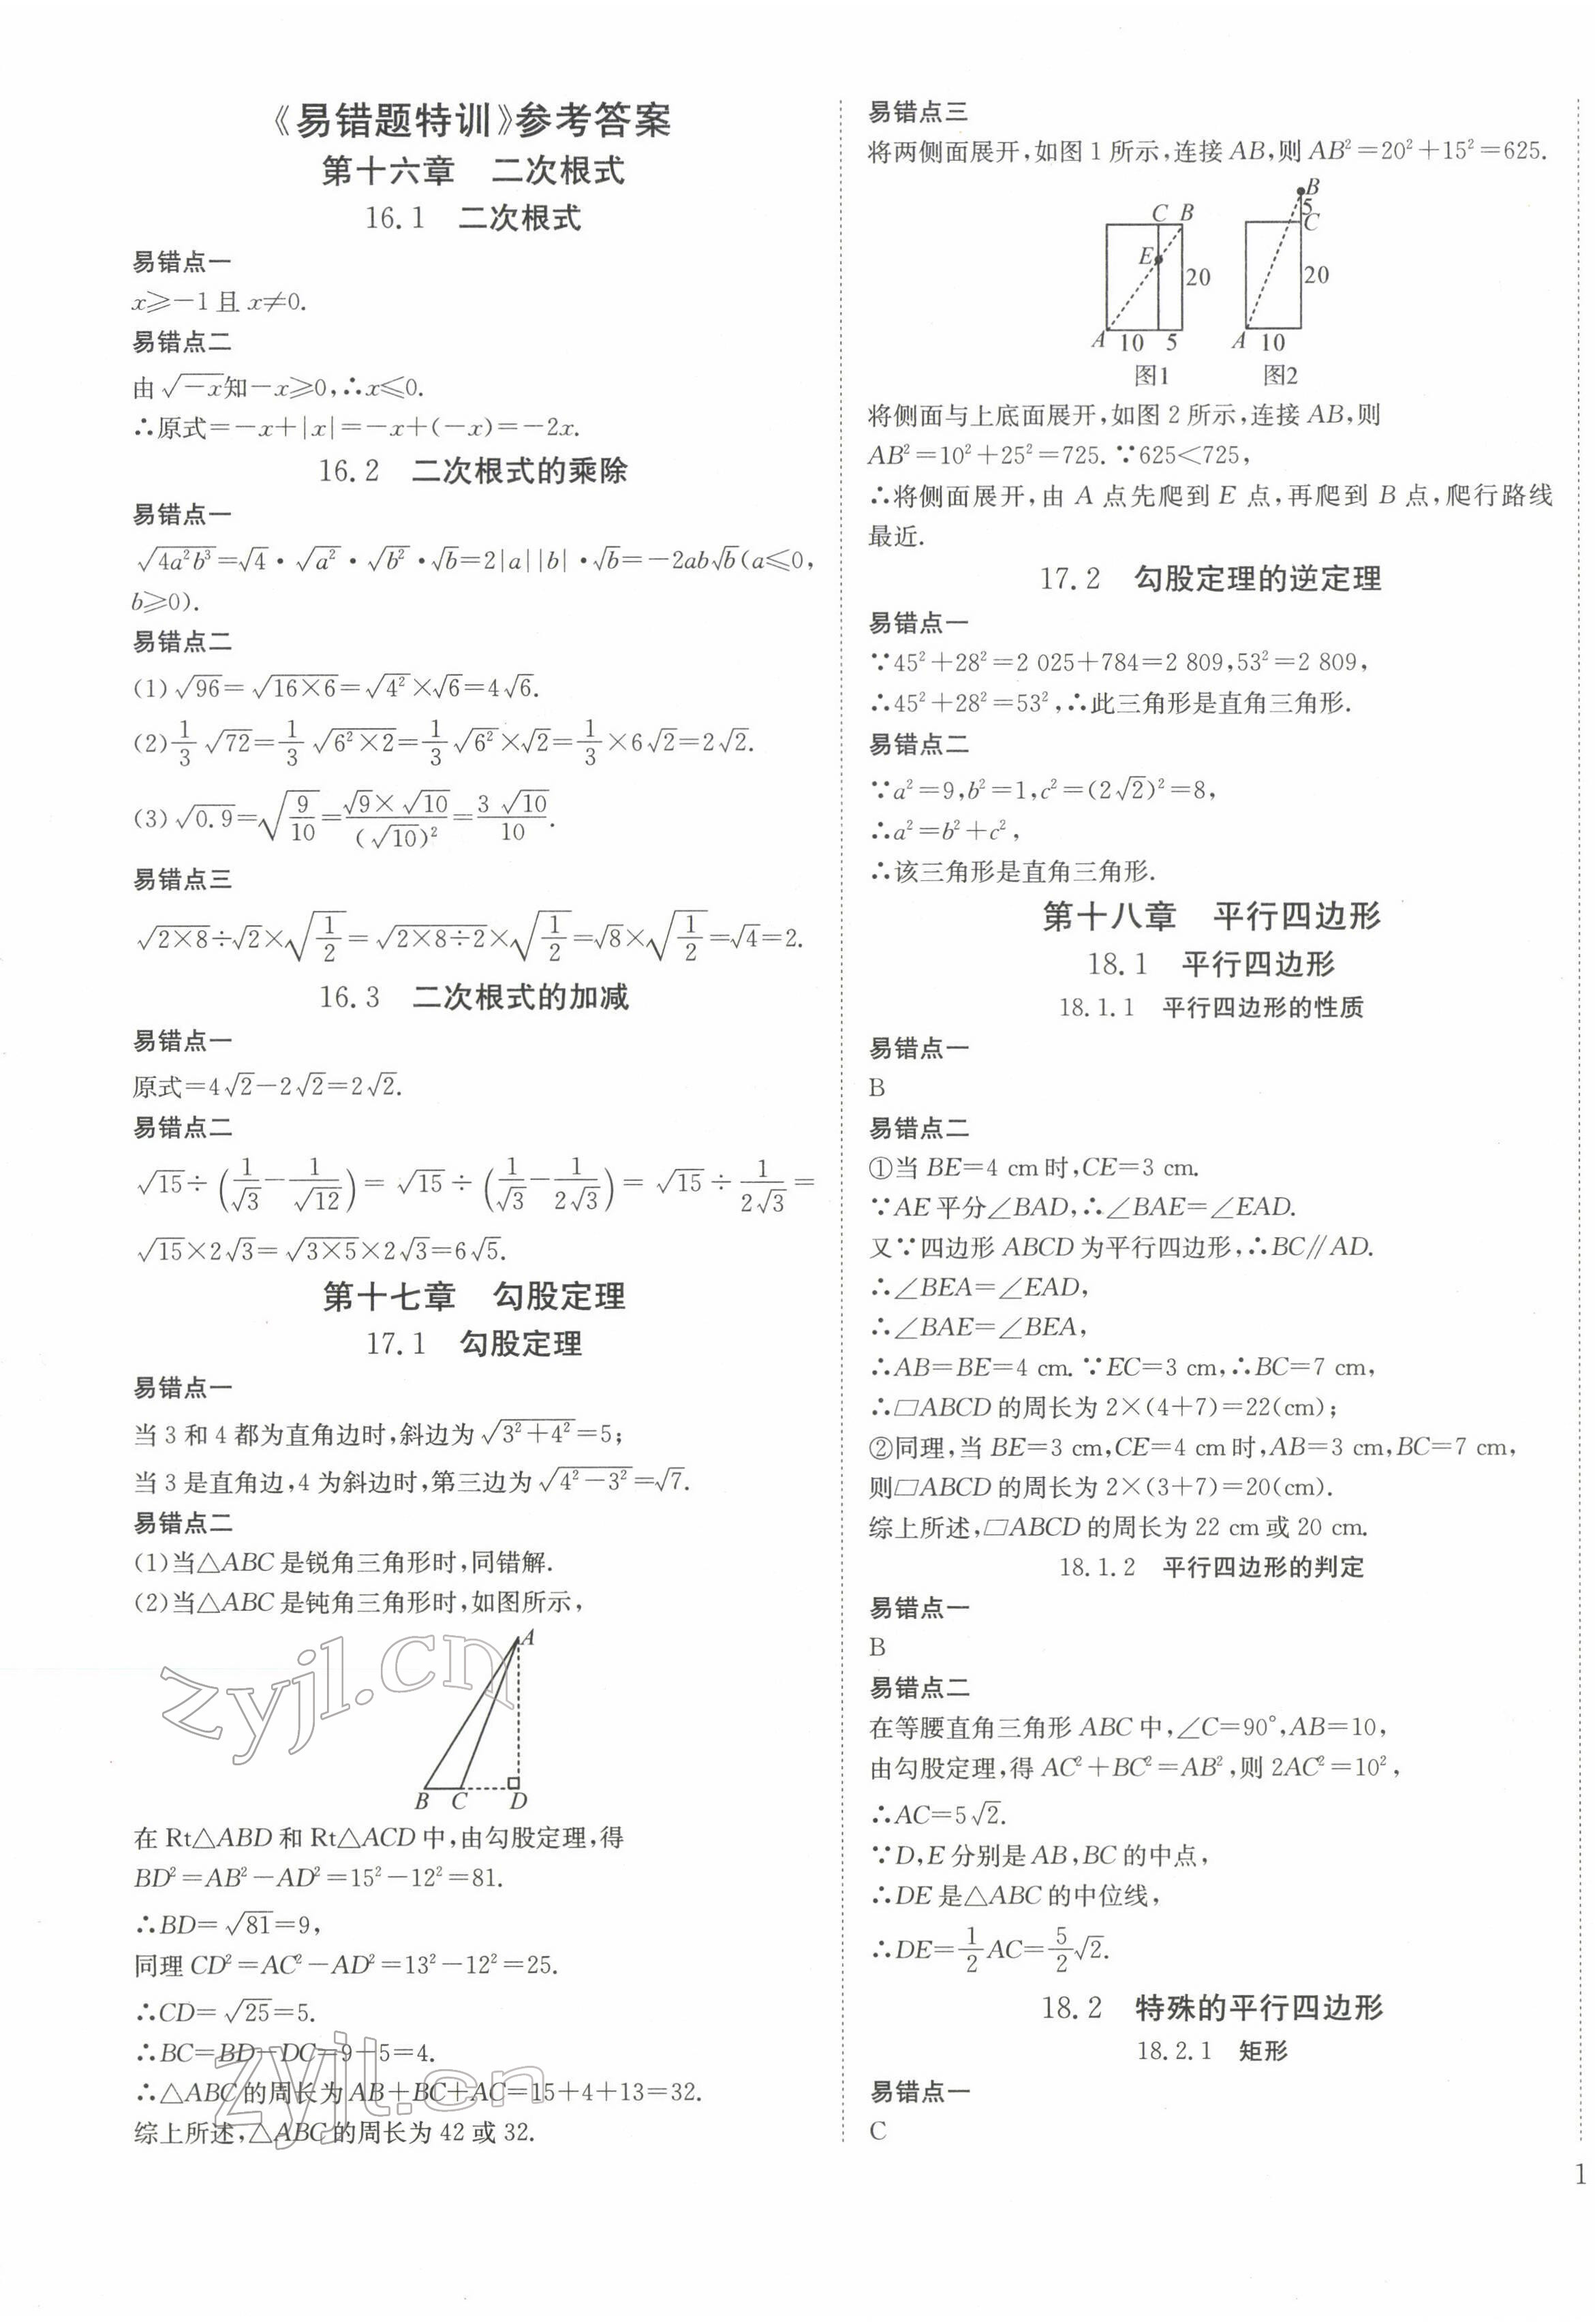 《易错题特训》参考答案
第十六章　二次根式
16.1　二次根式
易错点一
x≥－1且x≠0.
易错点二
由√(－x)知－x≥0,∴x≤0.
∴原式＝－x＋|x|＝－x＋(－x)＝－2x.
16.2　二次根式的乘除
易错点一
√(4a²b³)＝√4·√(a²)·√(b²)·√b＝2|a||b|·√b＝－2ab√b(a≤0,
b≥0).
易错点二
(1)√96＝√(16×6)＝√(4²)×√6＝4√6.
(2)1/3√72＝1/3√(6²×2)＝1/3√(6²)×√2＝1/3×6√2＝2√2.
(3)√0.9＝√(9/10)＝(√9×√10)/(√10)²＝3√10/10.
易错点三
√(2×8)÷√2×√(1/2)＝√(2×8÷2)×√(1/2)＝√8×√(1/2)＝√4＝2.
16.3　二次根式的加减
易错点一
原式＝4√2－2√2＝2√2.
易错点二
√15÷(1/√3－1/√12)＝√15÷(1/√3－1/(2√3))＝√15÷1/(2√3)＝
√15×2√3＝√(3×5)×2√3＝6√5.
第十七章　勾股定理
17.1　勾股定理
易错点一
当3和4都为直角边时,斜边为√(3²＋4²)＝5;
当3是直角边,4为斜边时,第三边为√(4²－3²)＝√7.
易错点二
(1)当△ABC是锐角三角形时,同错解.
(2)当△ABC是钝角三角形时,如图所示,
A
B C D
zyjl.cn
在Rt△ABD和Rt△ACD中,由勾股定理,得
BD²＝AB²－AD²＝15²－12²＝81.
∴BD＝√81＝9,
同理CD²＝AC²－AD²＝13²－12²＝25.
∴CD＝√25＝5.
∴BC＝BD－DC＝9－5＝4.
∴△ABC的周长为AB＋BC＋AC＝15＋4＋13＝32.
综上所述,△ABC的周长为42或32.
zyjl.cn
易错点三
将两侧面展开,如图1所示,连接AB,则AB²＝20²＋15²＝625.
C B
E
20
A 10 5
图1
B
5
C
20
A 10
图2
将侧面与上底面展开,如图2所示,连接AB,则
AB²＝10²＋25²＝725.∵625＜725,
∴将侧面展开,由A点先爬到E点,再爬到B点,爬行路线
最近.
17.2　勾股定理的逆定理
易错点一
∵45²＋28²＝2 025＋784＝2 809,53²＝2 809,
∴45²＋28²＝53²,∴此三角形是直角三角形.
易错点二
∵a²＝9,b²＝1,c²＝(2√2)²＝8,
∴a²＝b²＋c²,
∴该三角形是直角三角形.
第十八章　平行四边形
18.1　平行四边形
18.1.1　平行四边形的性质
易错点一
B
易错点二
①当BE＝4 cm时,CE＝3 cm.
∵AE平分∠BAD,∴∠BAE＝∠EAD.
又∵四边形ABCD为平行四边形,∴BC∥AD.
∴∠BEA＝∠EAD,
∴∠BAE＝∠BEA,
∴AB＝BE＝4 cm.∵EC＝3 cm,∴BC＝7 cm,
∴▱ABCD的周长为2×(4＋7)＝22(cm);
②同理,当BE＝3 cm,CE＝4 cm时,AB＝3 cm,BC＝7 cm,
则▱ABCD的周长为2×(3＋7)＝20(cm).
综上所述,▱ABCD的周长为22 cm或20 cm.
18.1.2　平行四边形的判定
易错点一
B
易错点二
在等腰直角三角形ABC中,∠C＝90°,AB＝10,
由勾股定理,得AC²＋BC²＝AB²,则2AC²＝10²,
∴AC＝5√2.
∵D,E分别是AB,BC的中点,
∴DE是△ABC的中位线,
∴DE＝1/2AC＝5/2√2.
18.2　特殊的平行四边形
18.2.1　矩形
易错点一
C
1